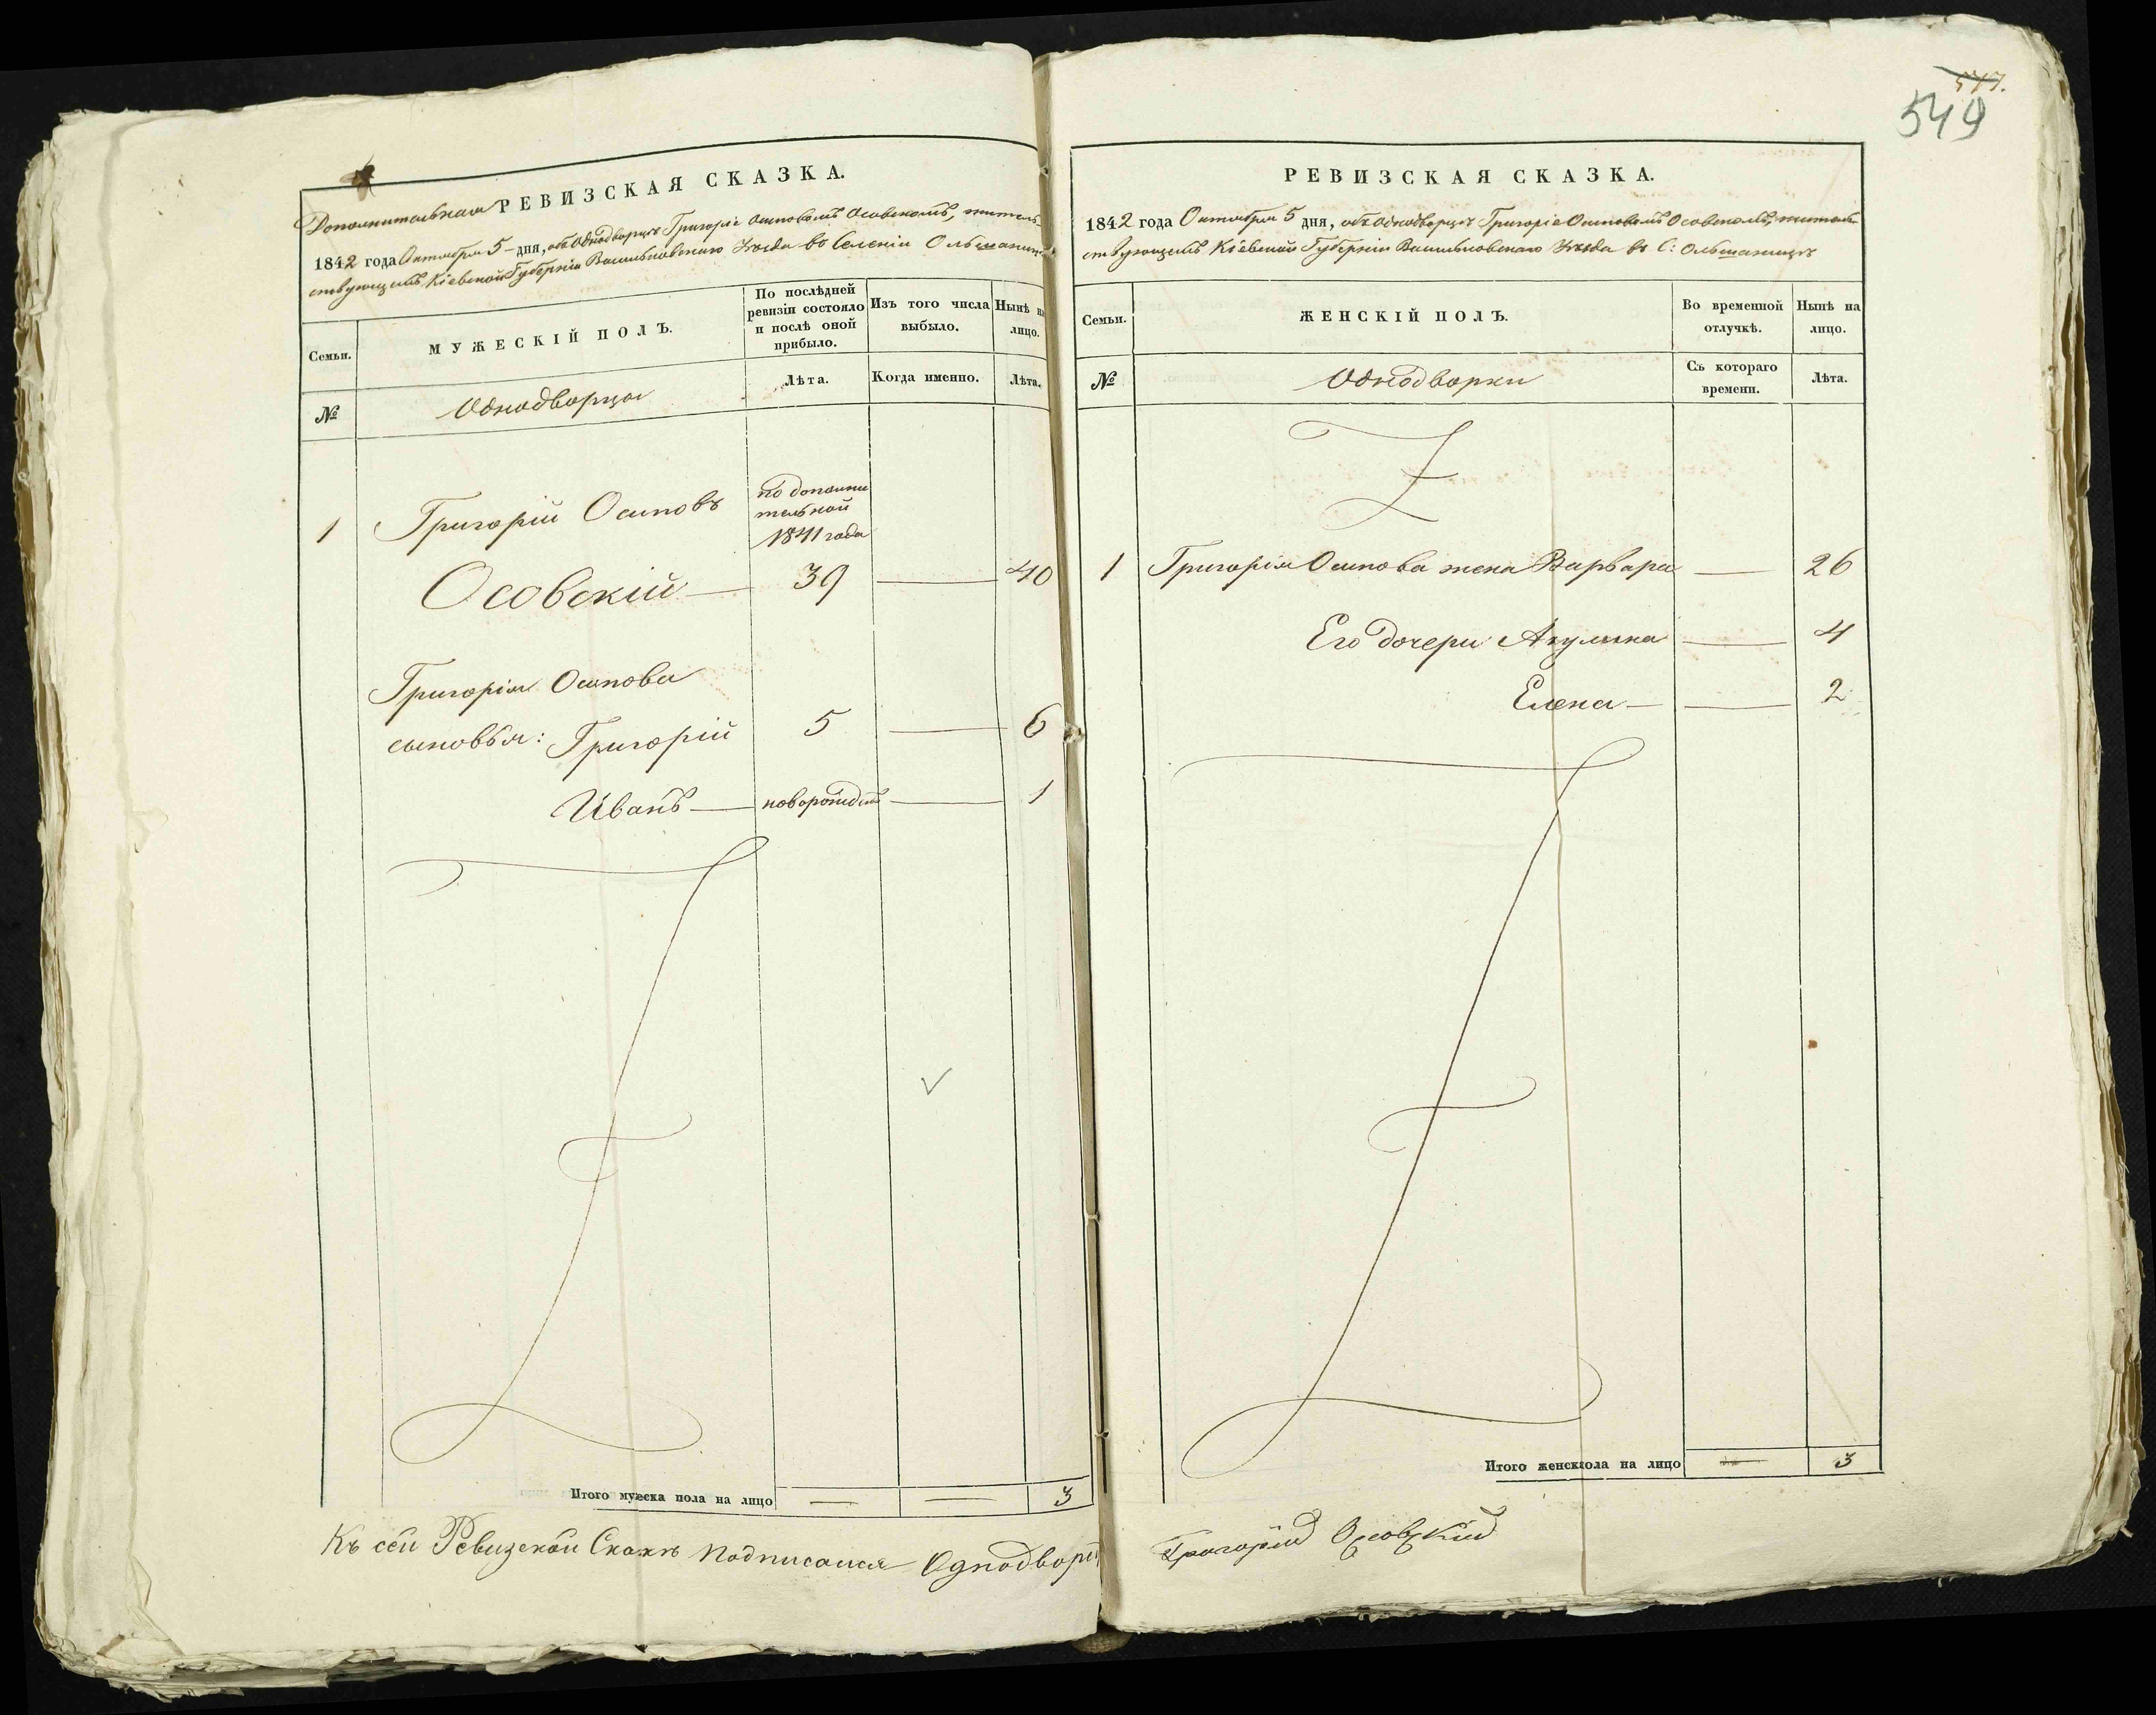 Дополнительная РЕВИЗСКАЯ СКАЗКА.
1842 года Октября 5 дня, объ Однодворцѣ Григоріе Осиповомъ Осовскомъ, житель-
ствующемъ Кіевской Губерніи Васильковскаго Уѣзда во Селеніи Ольшаницѣ
Семьи.
МУЖЕСКІЙ ПОЛЪ.
По послѣдней
ревизіи состояло
и послѣ оной
прибыло.
Изъ того числа
выбыло.
Нынѣ на
лицо.
№
Однодворцы
Лѣта.
Когда именно.
Лѣта.
1 Григорій Осиповъ
по дополни
тельной
1841 года
Осовскій — 39 — 40
Григорія Осипова
сыновья: Григорій 5 — 6
Иванъ — новорожден — 1
Итого мужеска пола на лицо — — 3
Къ сей Ревизской Сказкѣ подписался Однодворец
577.
549
РЕВИЗСКАЯ СКАЗКА.
1842 года Октября 5 дня, объ Однодворцѣ Григоріе Осиповомъ Осовскомъ, житель-
ствующемъ Кіевской Губерніи Васильковскаго Уѣзда въ С: Ольшаницѣ
Семьи.
ЖЕНСКІЙ ПОЛЪ.
Во временной
отлучкѣ.
Нынѣ на
лицо.
№
Однодворки
Съ котораго
времени.
Лѣта.
1 Григорія Осипова жена Варвара — 26
Его дочери Акулина — 4
Елена — — 2
Итого женск пола на лицо — 3
Григорій Осовскій